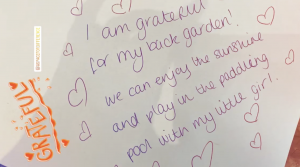 I am grateful
for my back garden!
We can enjoy the sunshine
and play in the paddling
pool with my little girl.
GRATEFUL